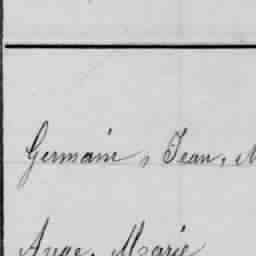 Germain, Jean, M
Ange, Marie